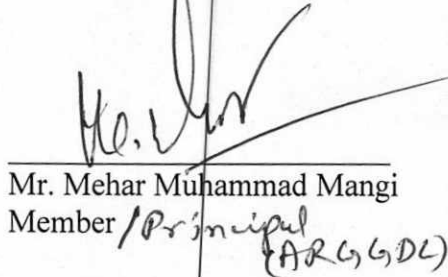 Mr. Mehar Muhammad Mangi
Member / Principal
(ARGGDC)